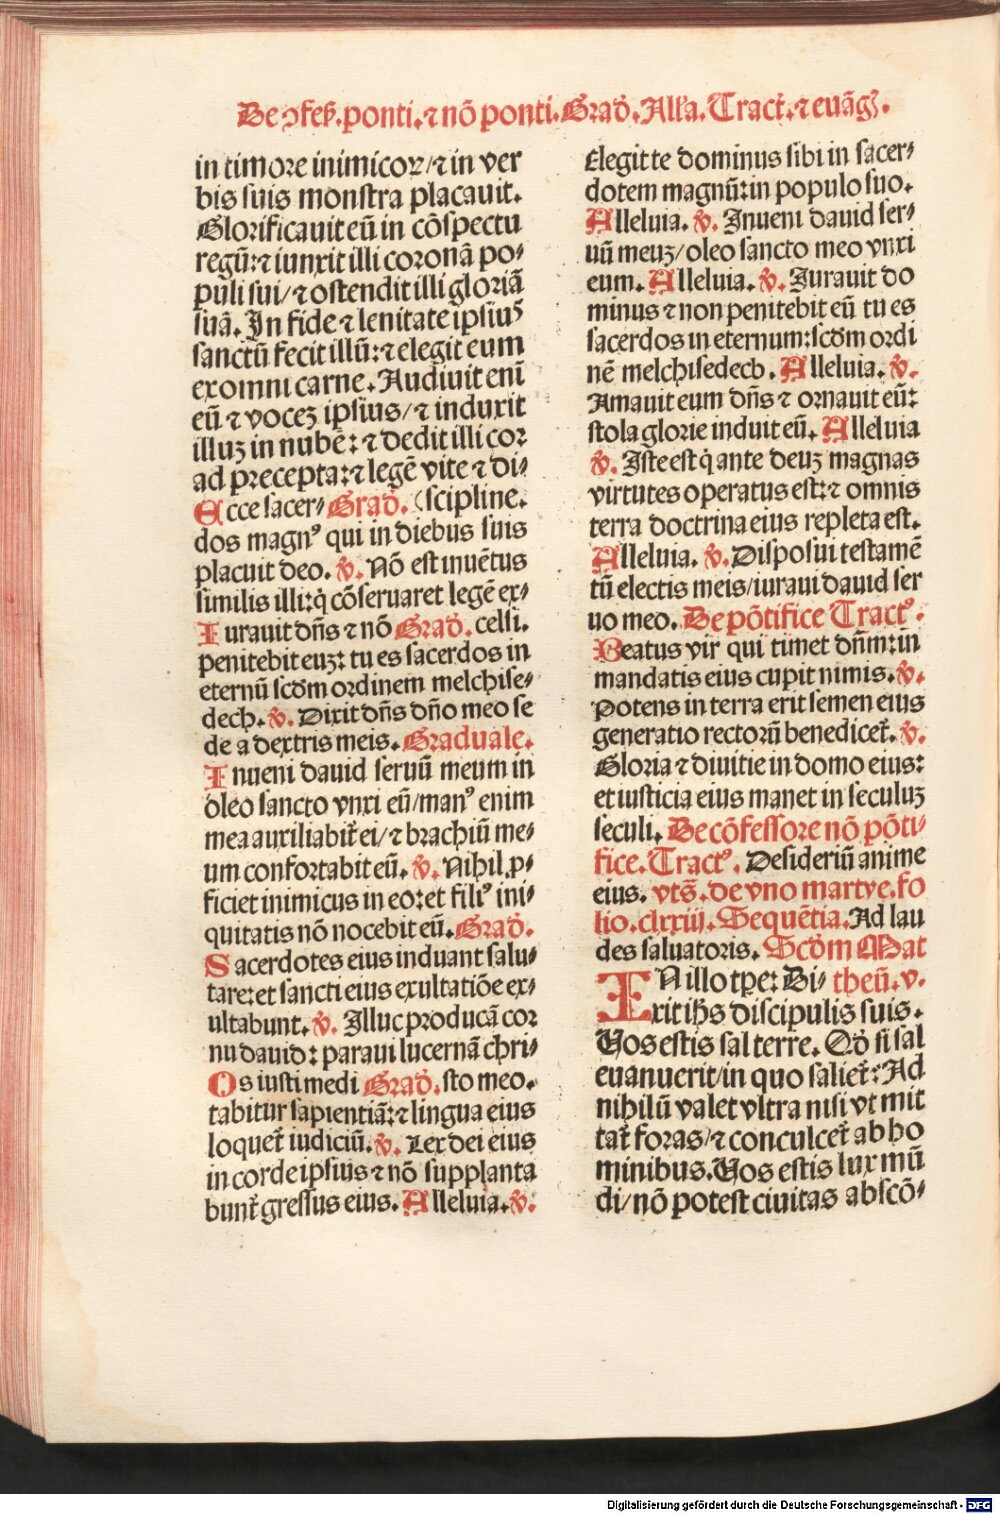 De ↄfeſſ. ponti. ⁊ nō ponti. Grad̛. Allˀa. Tract. ⁊ euāgꝭ.
in timore inimicoꝝ/ ⁊ in ver
bis ſuis monſtra placauit.
Glorificauit eū in cōſpectu
regū: ⁊ iunxit illi coronā po⸗
puli ſui/ ⁊ oſtendit illi gloriā
ſuā. In fide ⁊ lenitate ipſiuꝰ
ſanctū fecit illū: ⁊ elegit eum
ex omni carne. Audiuit enī
eū ⁊ vocez ipſius/ ⁊ induxit
illuz in nubē: ⁊ dedit illi cor
ad precepta: ⁊ legē vite ⁊ di⸗
Ecce ſacer⸗ Grad̛. (ſcipline.
dos magnꝰ qui in diebus ſuis
placuit deo. ꝟ. Nō eſt inuētus
ſimilis illi: q̇ cōſeruaret legē ex⸗
Iurauit dn̄s ⁊ nō Grad̛. celſi.
penitebit euz: tu es ſacerdos in
eternū ſcd̄m ordinem melchiſe⸗
dech. ꝟ. Dixit dn̄s dn̄o meo ſe
de a dextris meis. Graduale.
Inueni dauid ſeruū meum in
oleo ſancto vnxi eū/ manꝰ enim
mea auxiliabit̛ ei/ ⁊ brachiū me⸗
um confortabit eū. ꝟ. Nihil ꝓ⸗
ficiet inimicus in eo: et filiꝰ ini⸗
quitatis nō nocebit eū. Grad̛.
Sacerdotes eius induant ſalu⸗
tare: et ſancti eius exultatiōe ex⸗
ultabunt. ꝟ. Illuc producā cor
nu dauid: paraui lucernā chri⸗
Os iuſti medi Grad̛. ſto meo.
tabitur ſapientiā: ⁊ lingua eius
loquet̛ iudiciū. ꝟ. Lex dei eius
in corde ipſius ⁊ nō ſupplanta
bunt̛ greſſus eius. Alleluia. ꝟ.
Elegit te dominus ſibi in ſacer⸗
dotem magnū: in populo ſuo.
Alleluia. ꝟ. Inueni dauid ſer⸗
uū meuz/ oleo ſancto meo vnxi
eum. Alleluia. ꝟ. Iurauit do
minus ⁊ non penitebit eū tu es
ſacerdos in eternum: ſcd̄m ordi
nē melchiſedech. Alleluia. ꝟ.
Amauit eum dn̄s ⁊ ornauit eū:
ſtola glorie induit eū. Alleluia
ꝟ. Iſte eſt q̇ ante deuz magnas
virtutes operatus eſt: ⁊ omnis
terra doctrina eius repleta eſt.
Alleluia. ꝟ. Diſpoſui teſtamē
tū electis meis/ iuraui dauid ſer
uo meo. De pōtifice Tractꝰ.
Beatus vir qui timet dn̄m: in
mandatis eius cupit nimis. ꝟ.
Potens in terra erit ſemen eius
generatio rectorū benedicet̛. ꝟ.
Gloria ⁊ diuitie in domo eius:
et iuſticia eius manet in ſeculuz
ſeculi. De cōfeſſore nō pōti⸗
fice. Tractꝰ. Deſideriū anime
eius. vts̄. de vno martyre. fo
lio. clxxiij. Sequētia. Ad lau
des ſaluatoris. Scd̄m Mat
IN illo tꝑe: Di⸗ theū. v.
xit ih̄s diſcipulis ſuis.
Vos eſtis ſal terre. Qd̛ ſi ſal
euanuerit/ in quo ſaliet̛: Ad
nihilū valet vltra niſi vt mit
tat̛ foras/ ⁊ conculcet̛ ab ho
minibus. Vos eſtis lux mū
di/ nō poteſt ciuitas abſcō⸗
Digitalisierung gefördert durch die Deutsche Forschungsgemeinschaft - DFG